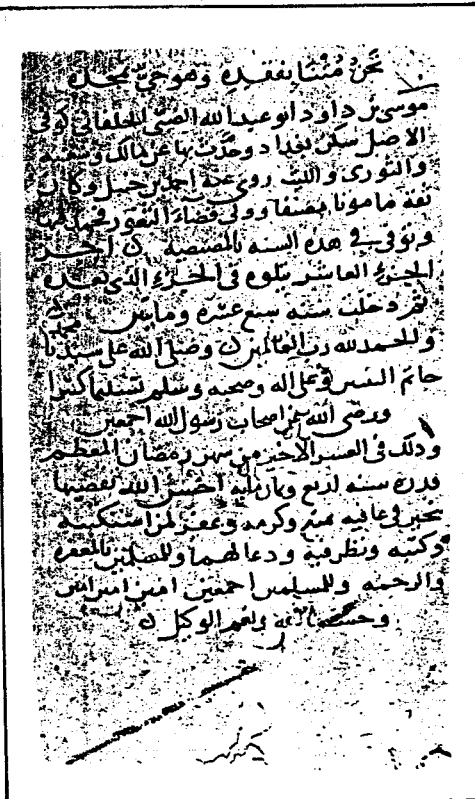 نحن متنا بفقده وهو حي بمجده
موسى بن داود ابو عبد الله الضبي الخلقاني كوفي
الاصل سكن بغداد وحدث بها عن مالك وشعبة
والثوري والليث روى عنه احمد بن حنبل وكان
ثقة مامونا مصنفا وولي قضاء الثغور فحمد فيها
وتوفي في هذه السنة بالمصيصة ن اخر
الجزء العاشر يتلوه في الجزء الذي بعده
ثم دخلت سنة سبع عشرة ومايتين
والحمد لله رب العالمين ن وصلى الله على سيدنا محمد
خاتم النبيين وعلى اله وصحبه وسلم تسليما كثيرا
ورضي الله عن اصحاب رسول الله اجمعين
وذلك في العشر الاخير من شهر رمضان المعظم
قدره سنة اربع وثمان مايه احسن الله تقضيها
بخير وعافيه بمنه وكرمه وغفر لمن استكتبه
وكتبه ونظر فيه ودعا لهما وللمسلمين بالمغفرة
والرحمة وللمسلمين اجمعين امين امين امين
وحسبنا الله ونعم الوكيل ن